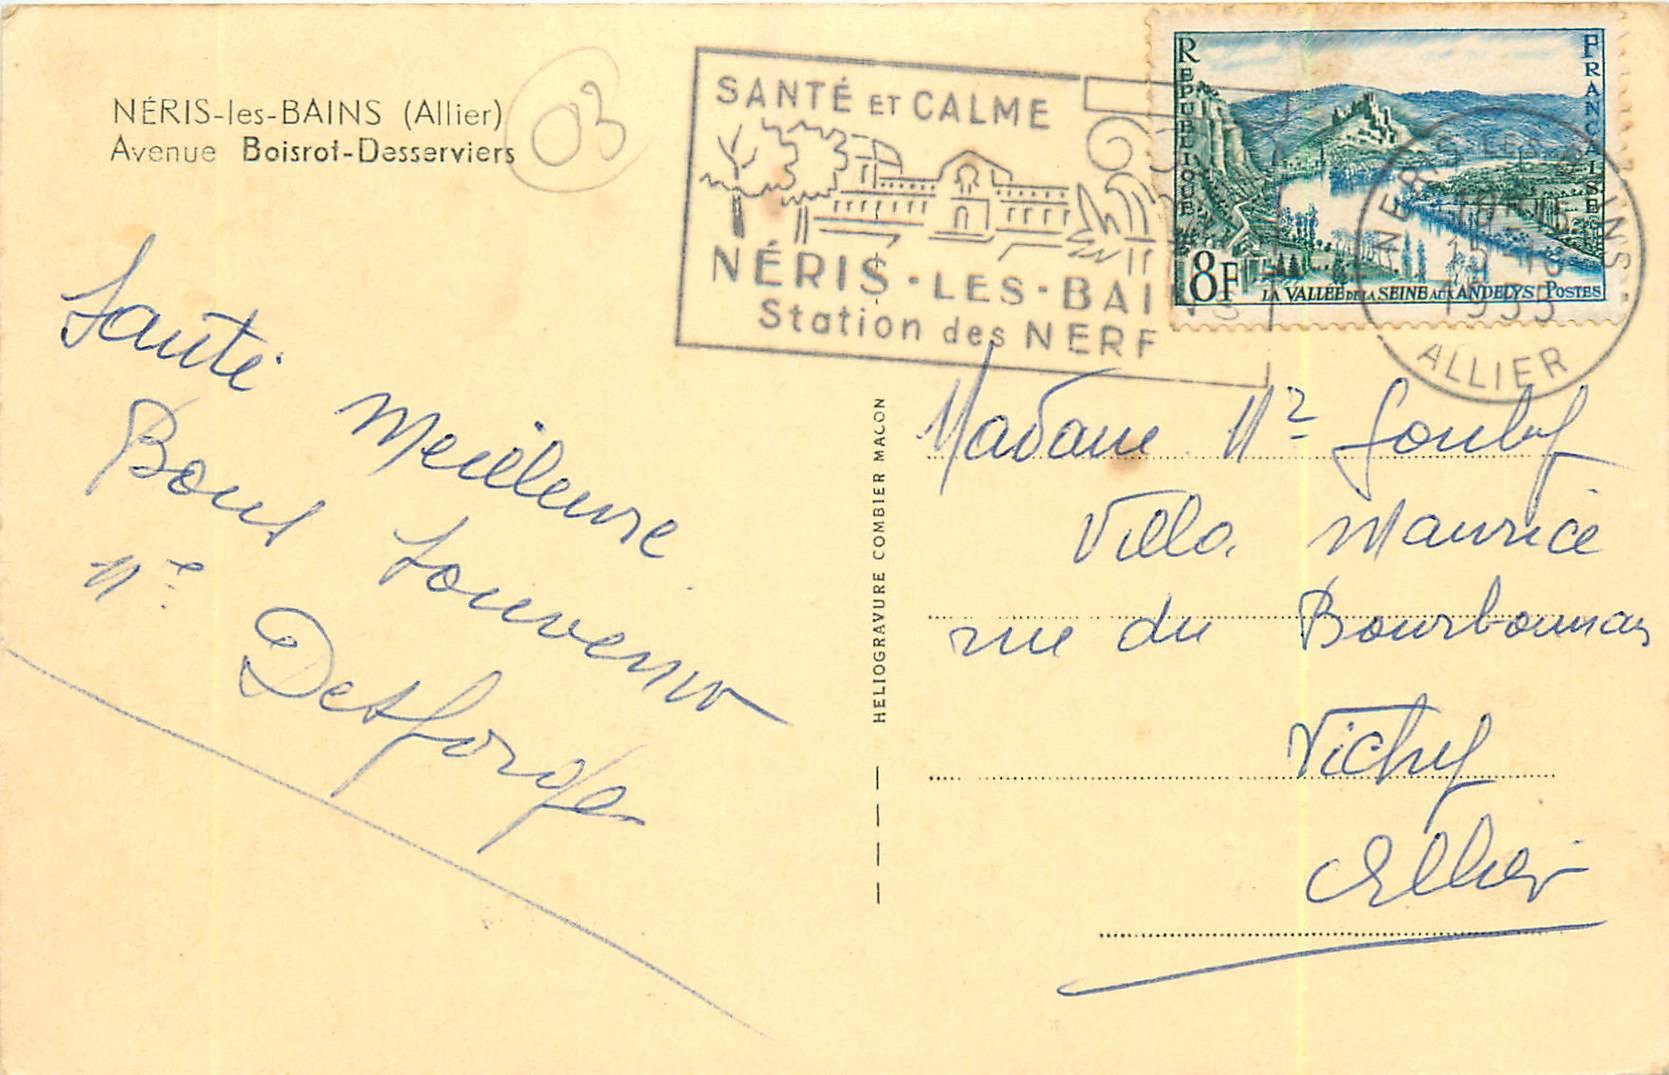 NÉRIS-les-BAINS (Allier)
Avenue Boisrot-Desserviers
03
SANTÉ ET CALME
NÉRIS-LES-BAINS
Station des NERF
RÉPUBLIQUE FRANÇAISE
8F
LA VALLÉE DE LA SEINE AUX ANDELYS POSTES
NERIS-LES-BAINS
1955
ALLIER
Santé Meilleure
Bons Souvenirs
Mme Desforges
HELIOGRAVURE COMBIER MACON
Madame
Villa Maurice
rue du Bourbonnais
Vichy
Allier